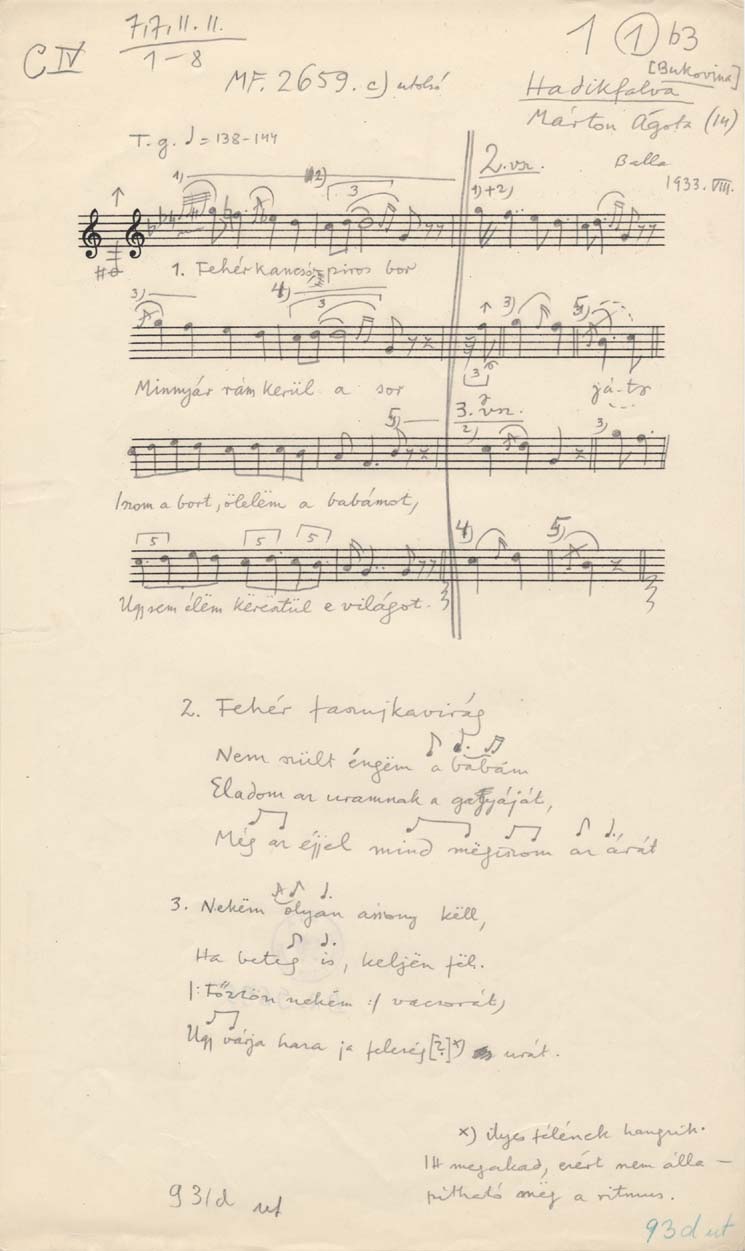 7,7,11.11.
1-8
C IV
MF. 2659. c) utolsó
1 ① b3
[Bukovina]
Hadikfalva
Márton Ágota (14)
Balla
1933. VIII.
T. g. ♩ = 138-144
1) 2) 3
2. vsz.
1)+2)
1. Fehér kancsó, piros bor
3) 4) 3
3) 5)
3
Minnyár rám kerül a sor
já-tz
5)
3. vsz.
2) 3)
Iszom a bort, ölelëm a babámot,
5 5 5
4) 5)
Ugysem élëm kërësztül e világot.
2. Fehér faszujkavirág
Nem szült éngëm a babám
Eladom az uramnak a gatyáját,
Még az éjjel mind mëgiszom az árát
3. Nekëm olyan asszony këll,
Ha beteg is, keljën fël.
|: Főzzön nekëm :| vacsorát,
Ugy várja haza ja feleség [?] x) urát.
x) ilyes félének hangzik.
Itt megakad, ezért nem álla-
pítható még a ritmus.
93/d ut
93 d ut